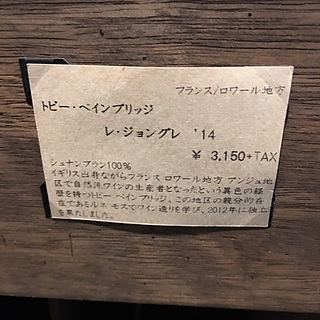 フランス/ロワール地方
トビー・ベインブリッジ
レ・ジョングレ '14
¥ 3,150+TAX
シュナンブラン100%
イギリス出身ながらフランス ロワール地方 アンジュ地
区で自然派ワインの生産者となったという異色の経
歴を持つトビー ベインブリッジ、この地区の親分的存
在であるルネ モスでワイン造りを学び、2012年に独立
を果たしました。